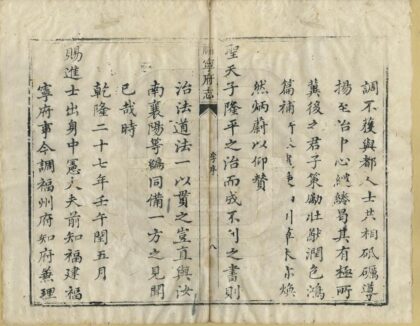 調不獲與都人士共相砥礪導
揚至治中心繾綣曷其有極所
冀後之君子策勵壯猷潤色鴻
篇補
然炳蔚以仰贊
聖天子隆平之治而成不刊之書則
福寧府志
李序
八
治法道法一以貫之豈直與汝
南襄陽等編同備一方之見聞
已哉時
乾隆二十七年壬午閏五月
賜進士出身中憲大夫前知福建福
寧府事今調福州府知府兼理